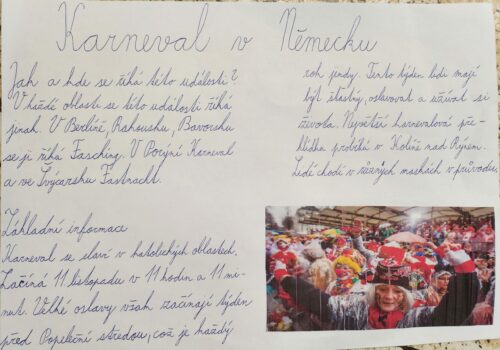 Karneval v Německu
Jak a kde se říká této události?
V každé oblasti se této události říká
jinak. V Berlíně, Rakousku, Bavorsku
se jí říká Fasching. V Porýní Karneval
a ve Švýcarsku Fastnacht.
Základní informace
Karneval se slaví v katolických oblastech.
Začíná 11 listopadu v 11 hodin a 11 mi-
nut. Velké oslavy však začínají týden
před Popeleční středou, což je každý
rok jindy. Tento týden lidi mají
být šťastný, oslavovat a užívat si
života. Největší karnevalová pře-
hlídka probíhá v Kolíně nad Rýnem.
Lidé chodí v různých maskách v průvodu.